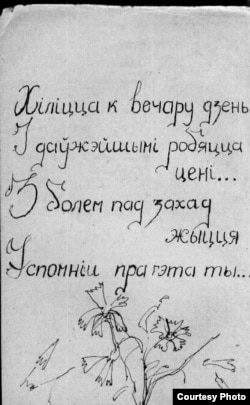 Хіліцца к вечару дзень
І даўжэйшымі робяцца
цені...
З болем пад захад
жыцця
Успомніш пра гэта ты...
Courtesy Photo